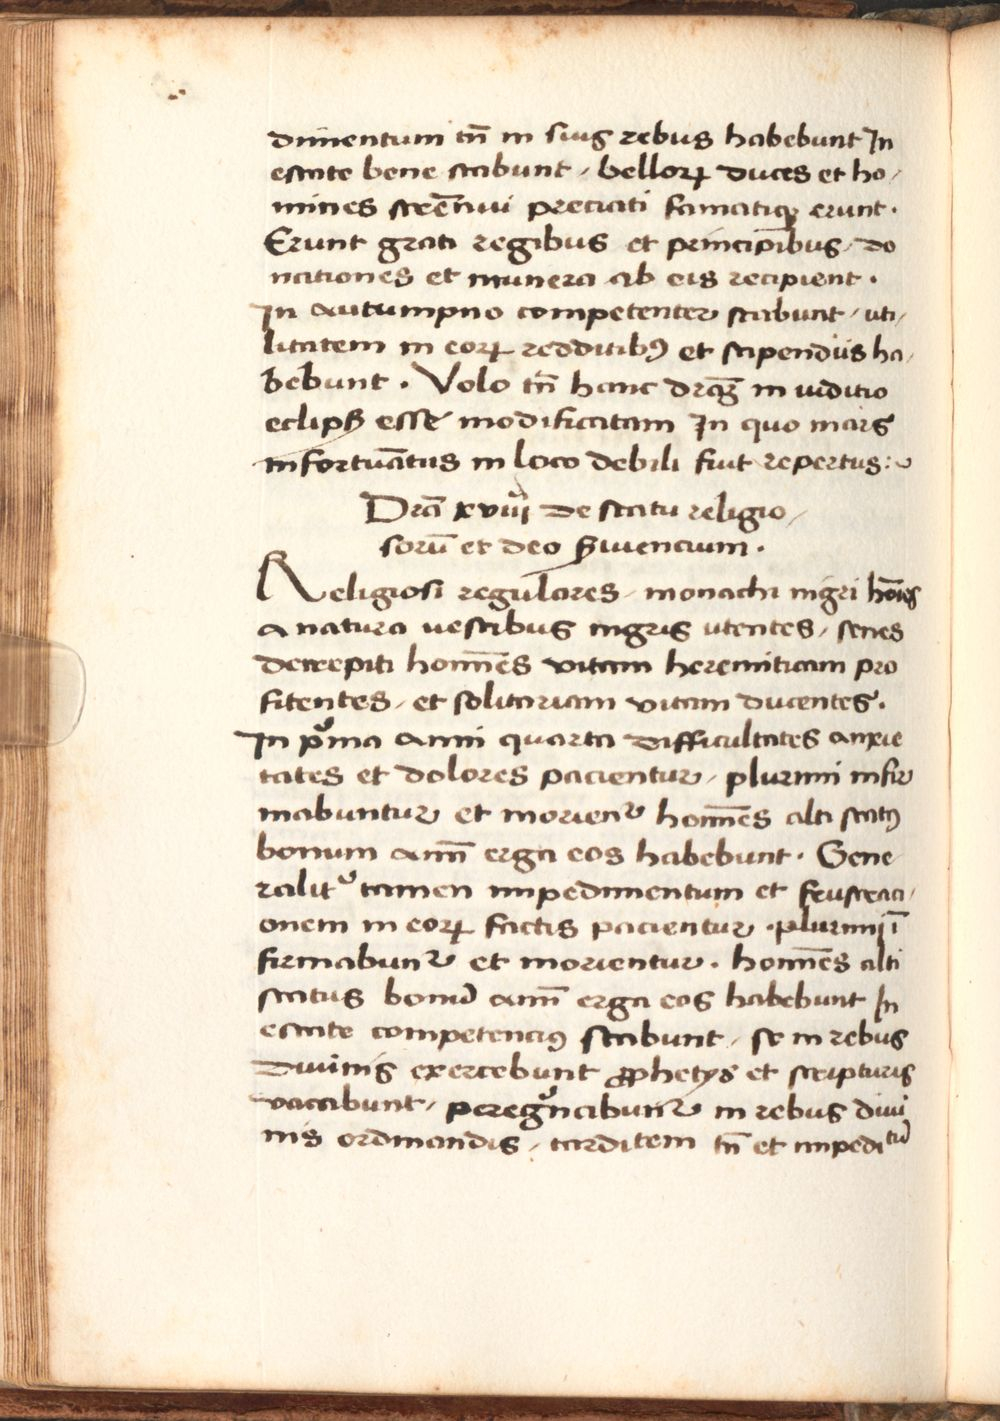 dimentum tñ in suis rebus habebunt In
estate bene stabunt / belloꝝ duces et ho/
mines strēnui preciati famatiqꝫ erunt .
Erunt grati regibus et principibus / do
nationes et munera ab eis recipient .
In autumpno competenter stabunt / uti/
litatem in eoꝝ redditibꝰ et stipendiis ha/
bebunt . Volo tñ hanc dr̄aꝫ in iuditio
eclipß esse modificatam In quo mars
infortūatus in loco debili fuit repertus :~
Dr̄a xviii de statu religio/
sorū et deo ßuiencium .
Religiosi regulares / monachi nigri hōīes
a natura vestibus nigris utentes / senes
decrepiti homīes vitam heremiticam pro
fitentes / et solitariam vitam ducentes .
In pͥma anni quarta difficultates anxie
tates et dolores pacientur / plurimi infir
mabuntur et morienͬ homīes alti statꝰ
bonum anīm̄ erga eos habebunt . Gene
ralitͬ tamen impedimentum et frustraci/
onem in eoꝝ factis pacientur . plurimi ī
firmabunͬ et morientur . homīes alti
status bonū anīm̄ erga eos habebunt In
estate competenciꝰ stabunt / se in rebus
diuinis exercebunt ꝓphetys et scripturis
vacabunt / peregͥnabunͬ in rebus diui
nis ordinandis / tarditem tñ et impeditū